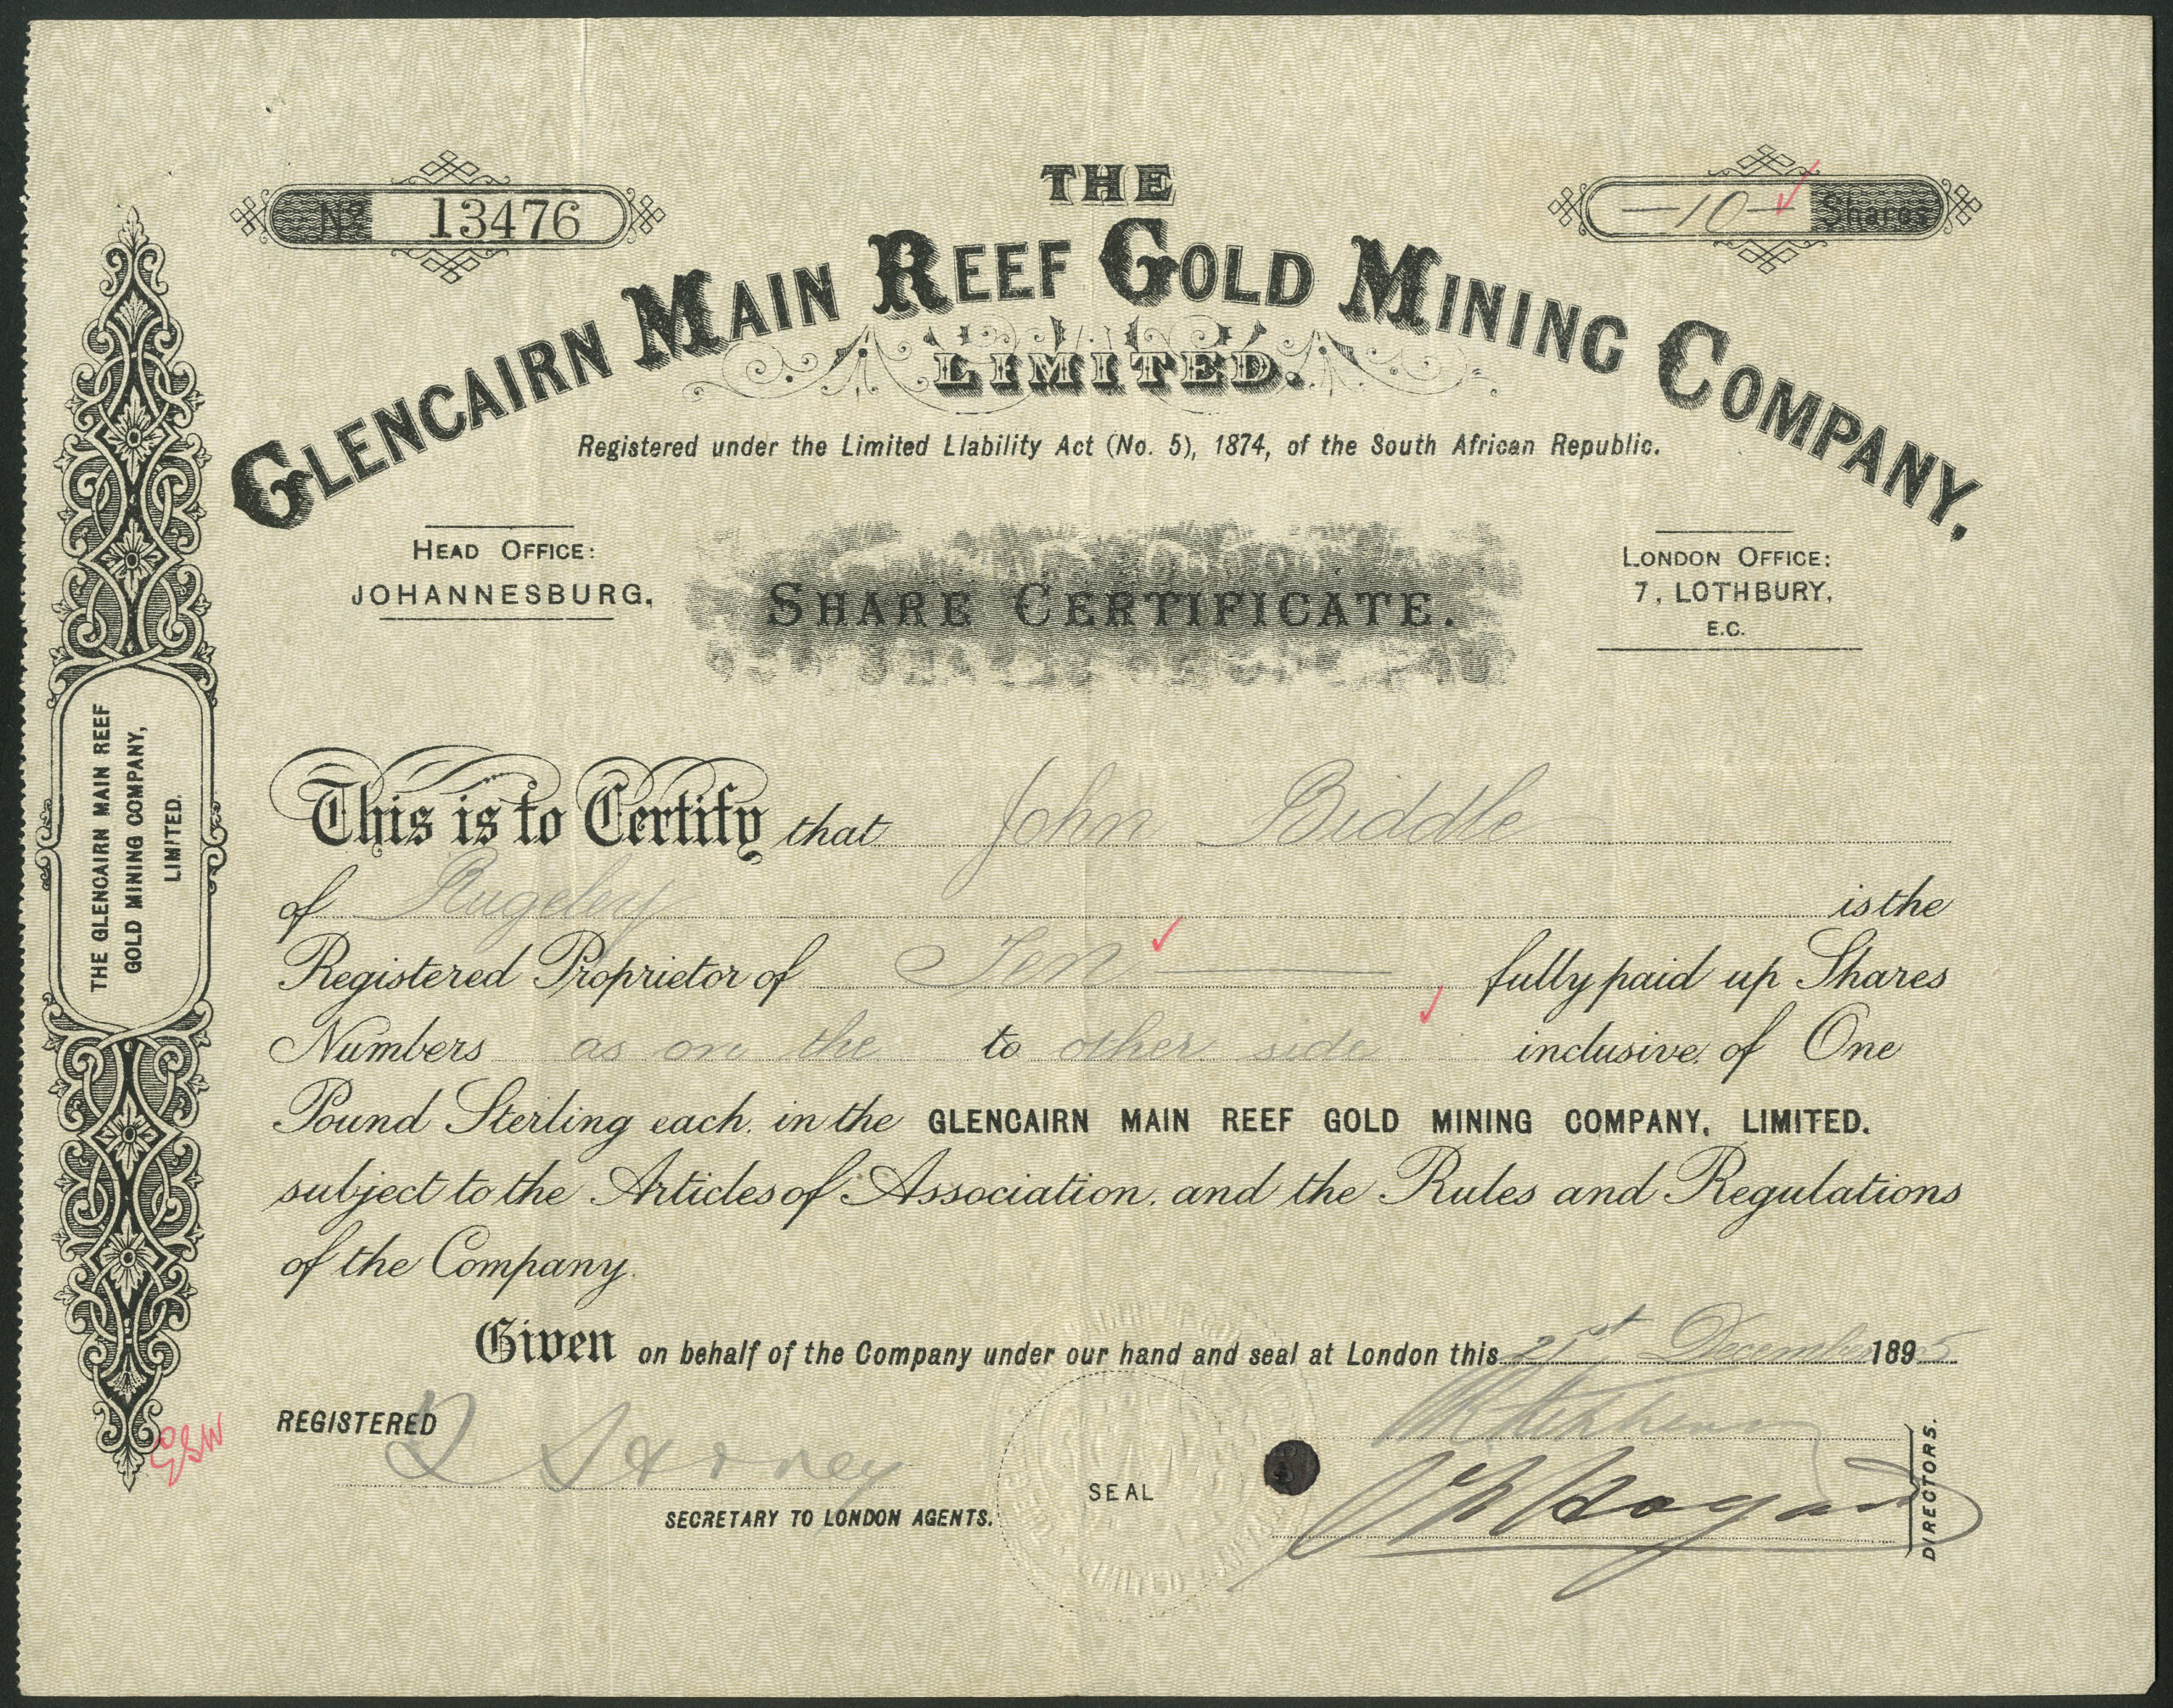 No 13476
THE
-10- Shares
GLENCAIRN MAIN REEF GOLD MINING COMPANY,
LIMITED.
Registered under the Limited Liability Act (No. 5), 1874, of the South African Republic.
HEAD OFFICE:
JOHANNESBURG.
SHARE CERTIFICATE.
LONDON OFFICE:
7, LOTHBURY,
E.C.
THE GLENCAIRN MAIN REEF
GOLD MINING COMPANY,
LIMITED.
This is to Certify that John Biddle
of Rugeley is the
Registered Proprietor of Ten fully paid up Shares
Numbers as on the to other side inclusive of One
Pound Sterling each in the GLENCAIRN MAIN REEF GOLD MINING COMPANY, LIMITED.
subject to the Articles of Association, and the Rules and Regulations
of the Company.
Given on behalf of the Company under our hand and seal at London this 21st December 1895
REGISTERED
SEAL
SECRETARY TO LONDON AGENTS.
DIRECTORS.